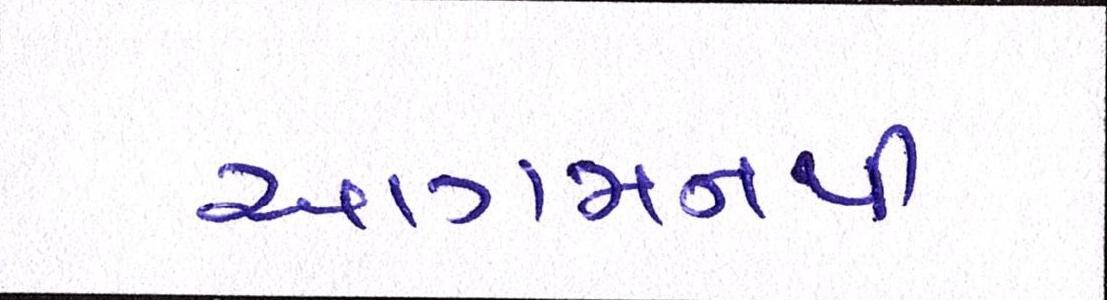 આગમનથી